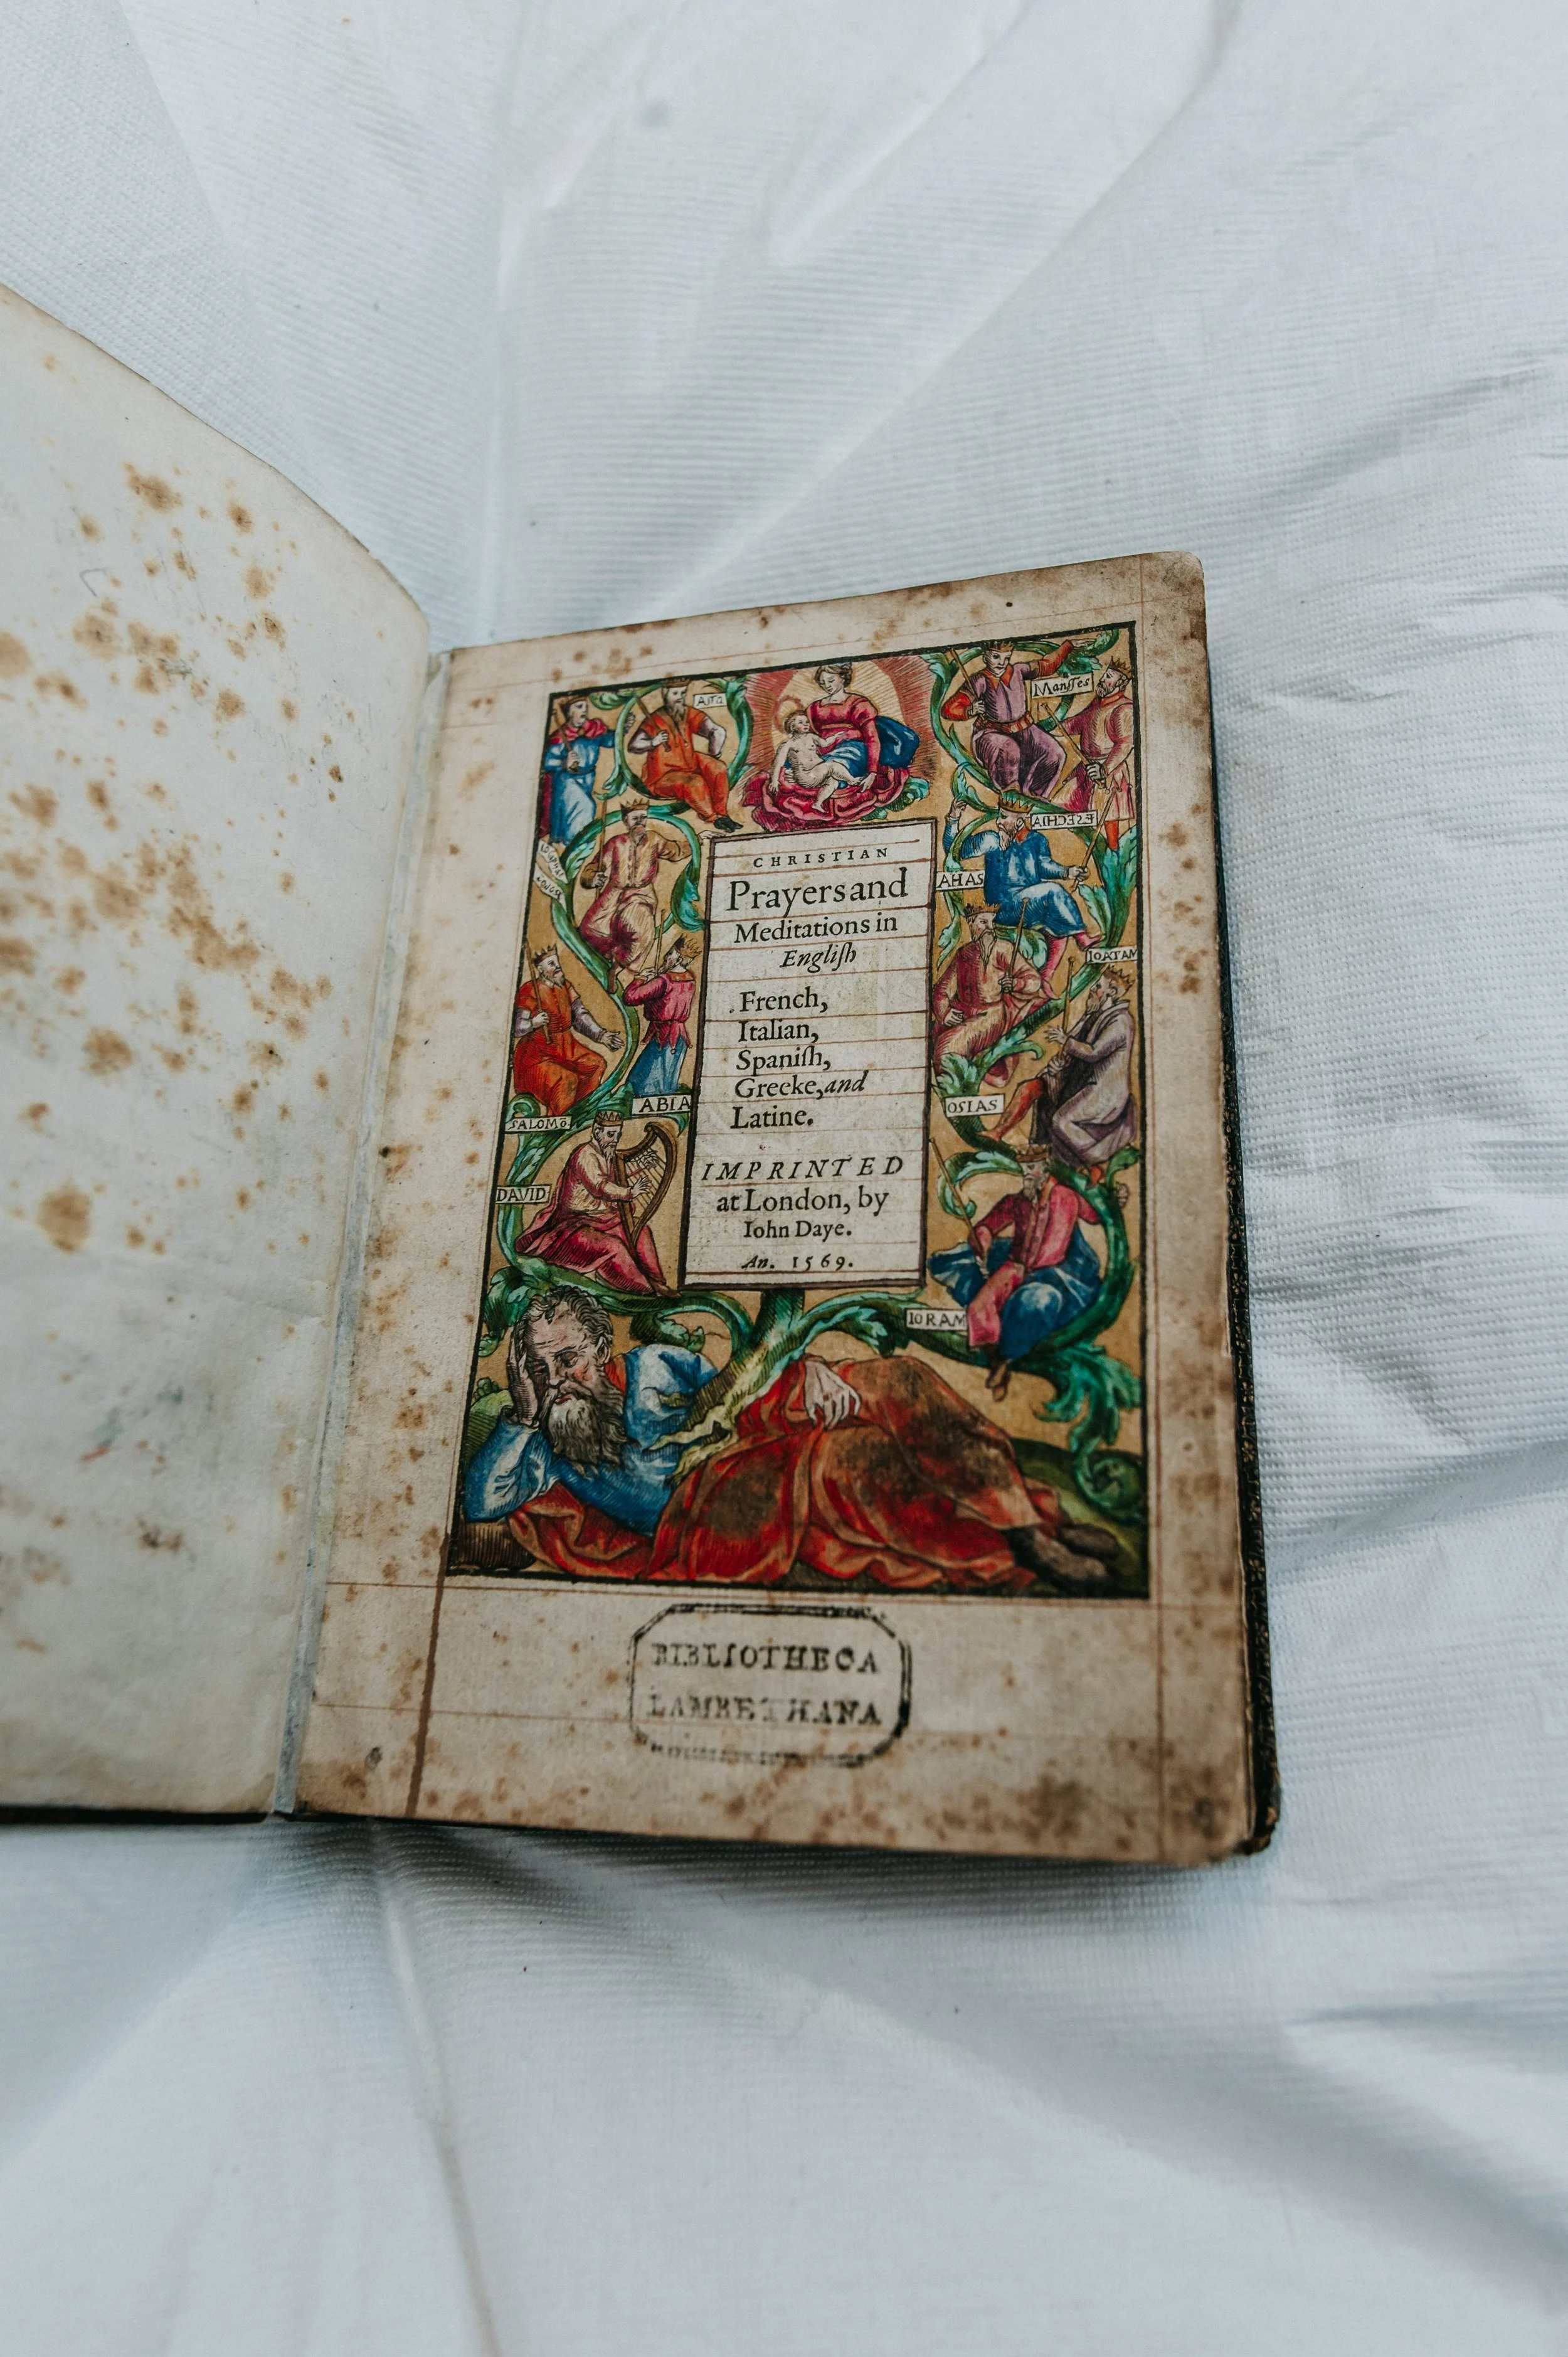 Asa
Mansses
ESECHIA
CHRISTIAN
Prayers and
AHAS
Meditations in
Engliſh
IOATAM
French,
Italian,
Spaniſh,
Greeke, and
ABIA
OSIAS
Latine.
SALOMō
IMPRINTED
DAVID
at London, by
Iohn Daye.
An. 1569.
IORAM
BIBLIOTHECA
LAMBETHANA